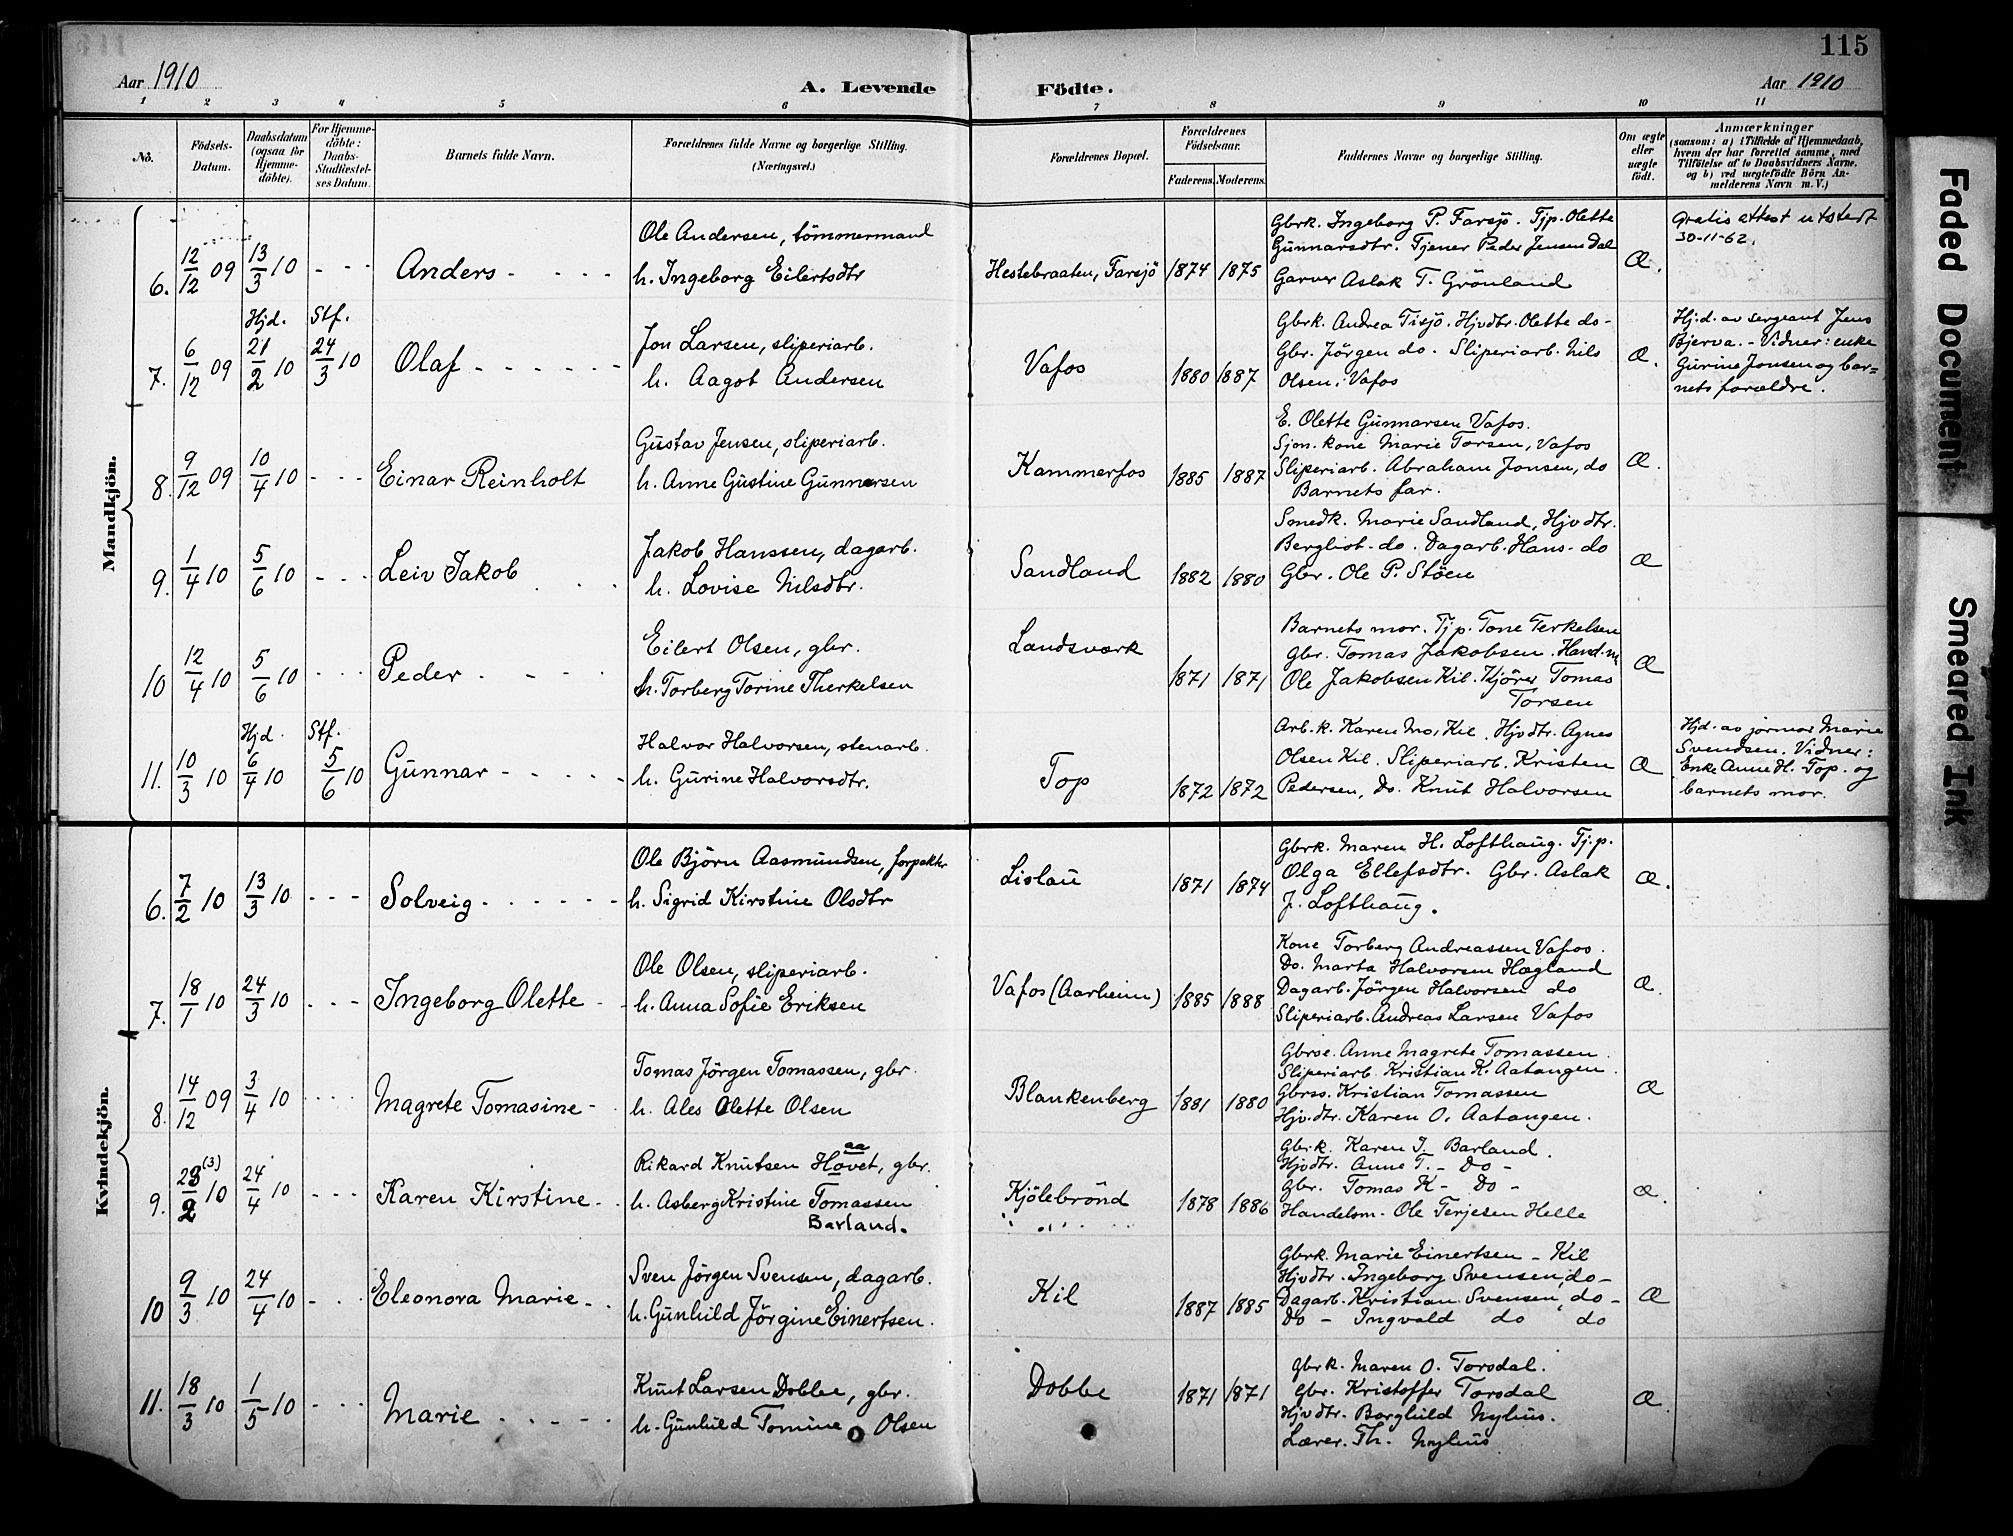 115
Aar 1910
A. Levende Födte.
Aar 1910
1 2 3 4 5 6 7 8 9 10 11
No.
Födsels-Datum.
Daabsdatum (ogsaa for Hjemme-döbte).
For Hjemme-döbte: Daabs-Stadfæstel-ses Datum.
Barnets fulde Navn.
Forældrenes fulde Navne og borgerlige Stilling. (Næringsvei.)
Forældrenes Bopæl.
Forældrenes Födselsaar.
Faderens. Moderens.
Faddernes Navne og borgerlige Stilling.
Om ægte eller uægte födt.
Anmærkninger
(saasom: a) i Tilfælde af Hjemmedaab, hvem der har forrettet samme, med Tilföielse af to Daabsvidners Navne. og b) ved uægtefödte Börn An-melderens Navn m. V.)
Mandkjön.
6. 12/12 09 13/3 10 - - - Anders - - - -
Ole Andersen, tömmermand
h. Ingeborg Eilertsdtr
Hestebraaten, Farsjö 1874 1875
Gbrk. Ingeborg P. Farsjö. Tjp. Olette
Gunnarsdtr. Tjener Peder Jensen Dal
Garver Aslak T. Grönland
Æ.
Gratis attest utstedt
30-11-62.
Hjd. Stf.
7. 6/12 09 21/2 10 24/3 10 Olaf - - - - - -
Jon Larsen, sliperiarb.
h. Aagot Andersen
Vafos 1880 1887
Gbrk. Andrea Tisjö. Hjvdtr. Olette do-
Gbr. Jörgen do. Sliperiarb. Nils
Olsen, Vafos
Æ.
Hj.d. av sergeant Jens
Bjerva. - Vidner: enke
Gurine Jonsen og bar=
nets forældre.
8. 9/12 09 10/4 10 - - - Einar Reinholt
Gustav Jensen, sliperiarb.
h. Anne Gustine Gunnersen
Kammerfos 1885 1887
E. Olette Gunnarsen Vafos.
Sjm. kone Marie Torsen, Vafos
Sliperiarb. Abraham Jonsen, do
Barnets far.
Æ.
9. 1/4 10 5/6 10 - - - Leiv Jakob
Jakob Hanssen, dagarb.
h. Lovise Nilsdtr.
Sandland 1882 1880
Smedk. Marie Sandland, Hjvdtr.
Bergliot - do. Dagarb. Hans - do
Gbr. Ole P. Stöen
Æ
10 12/4 10 5/6 10 - - - Peder - - - -
Eilert Olsen, gbr.
h. Torberg Torine Therkelsen
Landsværk 1871 1871
Barnets mor. Tj.p. Tone Terkelsen
Gbr. Tomas Jakobsen. Hand.m
Ole Jakobsen Kil. Kjörer Tomas
Torsen
Æ
Hjd. Stf.
11. 10/3 10 6/4 10 5/6 10 Gunnar - - - - -
Halvor Halvorsen, stenarb.
h. Gurine Halvorsdtr.
Top 1872 1872
Arb.k. Karen Mo, Kil. Hjvdtr. Agnes
Olsen Kil. Sliperiarb. Kristen
Pedersen, Do. Knut Halvorsen
Æ
Hjd. av jormor Marie
Svendsen. Vidner:
Enke Anne H. Top. og
barnets mor.
Kvindekjön.
6. 7/2 10 13/3 10 - - - Solveig - - - - - -
Ole Björn Aasmundsen, forpaktr
h. Sigrid Kirstine Olsdtr
Lislau 1871 1874
Gbrk. Maren H. Lofthaug. Tj.p.
Olga Ellefsdtr. Gbr. Aslak
J. Lofthaug.
Æ.
7. 18/1 10 24/3 10 - - - Ingeborg Olette -
Ole Olsen, sliperiarb.
h. Anna Sofie Eriksen
Vafos (Aarheim) 1885 1888
Kone Torberg Andreassen Vafos.
Do. Marta Halvorsen Hægland
Dagarb. Jörgen Halvorsen do
Sliperiarb. Andreas Larsen Vafos
Æ.
8. 14/12 09 3/4 10 - - - Magrete Tomasine -
Tomas Jörgen Tomassen, gbr.
h. Ales Olette Olsen
Blankenberg 1881 1880
Gbrse. Anne Magrete Tomassen
Sliperiarb. Kristian K. Aatangen.
Gbrss. Kristian Tomassen
Hjvdtr. Karen O. Aatangen.
Æ
9. 23 (3)/2 10 24/4 10 - - - Karen Kirstine - -
aa
Rikard Knutsen Hovet, gbr.
h. Asberg Kristine Tomassen
Barland.
Kjölebrönd 1878 1886
Gbrk. Karen T. Barland.
Hjvdtr. Anne T. - Do -
Gbr. Tomas K - Do -
Handelsm. Ole Terjesen Helle
Æ.
10 9/3 10 24/4 10 - - - Eleonora Marie - -
Sven Jörgen Svensen, dagarb.
h. Gunhild Jörgine Einertsen.
Kil 1887 1885
Gbrk. Marie Einertsen - Kil
Hjvdtr. Ingeborg Svensen, do -
Dagarb. Kristian Svensen, do -
Do - Ingvald do do
Æ
11. 18/3 10 1/5 10 - - - Marie - - - - -
Knut Larsen Dobbe, gbr.
h. Gunhild Tomine Olsen
Dobbe 1871 1871
Gbrk. Maren O. Torsdal.
Gbr. Kristoffer Torsdal
Hjvdtr. Borghild Nyhus.
Lærer. Th. Nyhus
Æ.
Faded Document
Smeared Ink